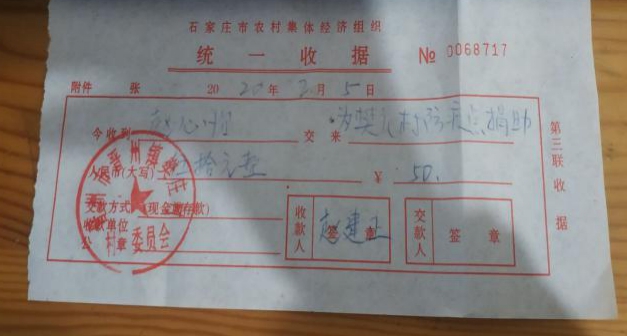 石家庄市农村集体经济组织
统一收据 № 0068717
附件 张 2020年3月5日
今收到 交来 为樊 村防疫点捐助
人民币(大写) 伍拾元整 ¥ 50.
交款方式 (现金或存款)
收款单位
公章
村 委员会
收款人 签章 赵建正
交款人 签章
第三联收据